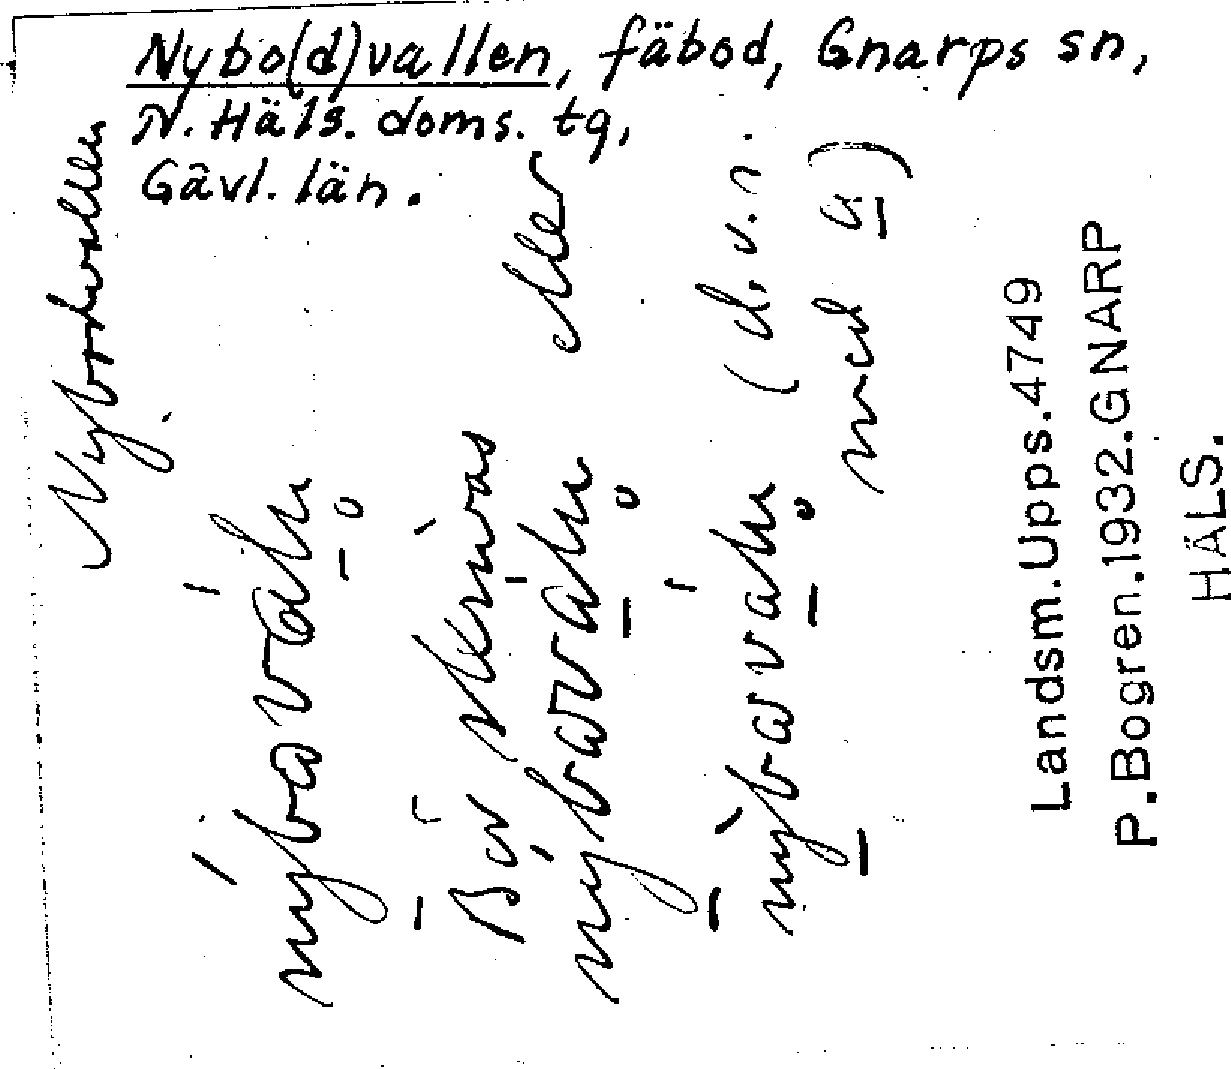 Nybo(d)vallen, fäbod, Gnarps sn,
N. Häls. doms. tg,
Gävl. län.
Nybodvallen
nýbavaln̥
Bör skrivas
eller
(d.v.s.
med a)
Landsm.Upps.4749
P.Bogren.1932.GNARP
HÄLS.